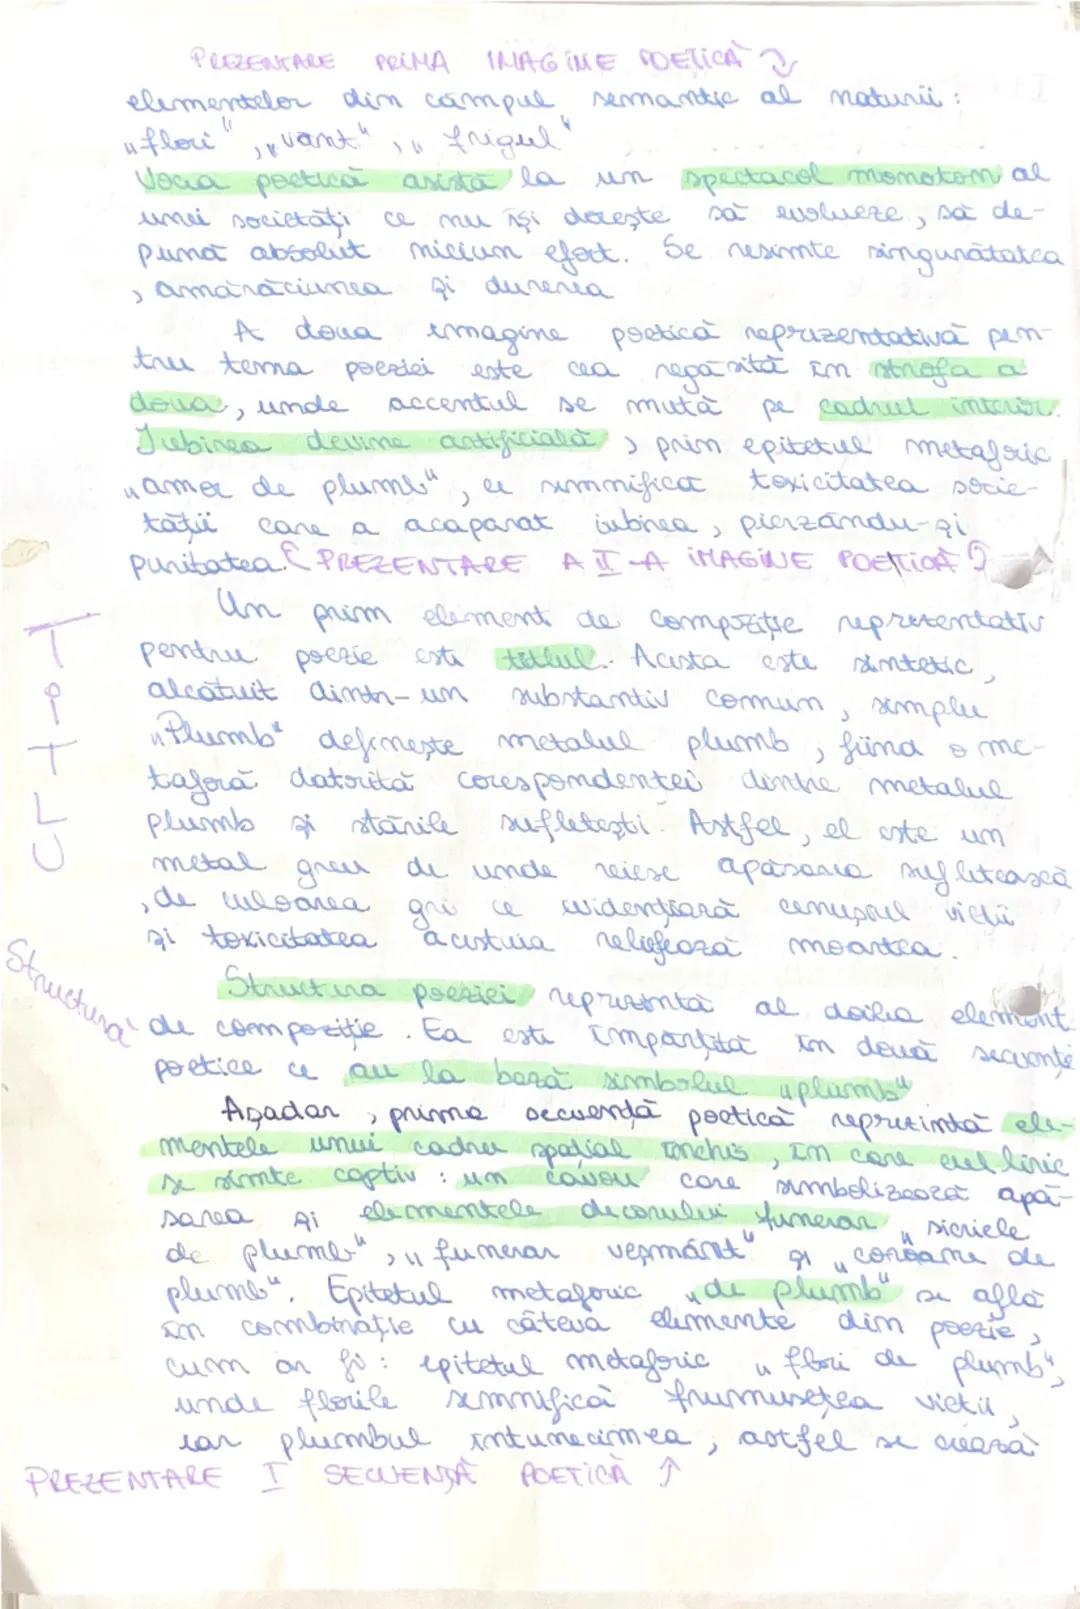 PREZENTARE PRIMA IMAGINE POETICĂ
elementelor din câmpul semantic al naturii:
„flori", „vânt", „frigul"
Vocea poetică asistă la un spectacol monoton al
unei societăți ce nu își dorește să evolueze, să de-
pună absolut niciun efort. Se resimte singurătatea
, amărăciunea și durerea
A doua imagine poetică reprezentativă pen-
tru tema poeziei este cea regăsită în strofa a
doua, unde accentul se mută pe cadrul interior.
Iubirea devine artificială, prin epitetul metaforic
„amor de plumb", ce semnifică toxicitatea socie-
tății care a acaparat iubirea, pierzându-și
puritatea. PREZENTARE A II-A IMAGINE POETICĂ
TITLU
Un prim element de compoziție reprezentativ
pentru poezie este titlul. Acesta este sintetic,
alcătuit dintr-un substantiv comun, simplu
„Plumb" definește metalul plumb, fiind o me-
taforă datorită corespondenței dintre metalul
plumb și stările sufletești. Astfel, el este un
metal greu de unde reiese apăsarea sufletească
, de culoarea gri ce evidențiază cenușiul vieții
și toxicitatea acestuia reliefează moartea.
Structura
Structura poeziei reprezintă al doilea element
de compoziție. Ea este împărțită în două secvențe
poetice ce au la bază simbolul „plumb"
Așadar, prima secvență poetică reprezintă ele-
mentele unui cadru spațial închis, în care eul liric
se simte captiv: un cavou care simbolizează apă-
sarea și elementele decorului funerar „sicriele
de plumb", „funerar veșmânt" și „coroane de
plumb". Epitetul metaforic „de plumb" se află
în combinație cu câteva elemente din poezie,
cum ar fi: epitetul metaforic „flori de plumb",
unde florile semnifică frumusețea vieții,
iar plumbul întunecimea, astfel se crează
PREZENTARE I SECVENȚĂ POETICĂ